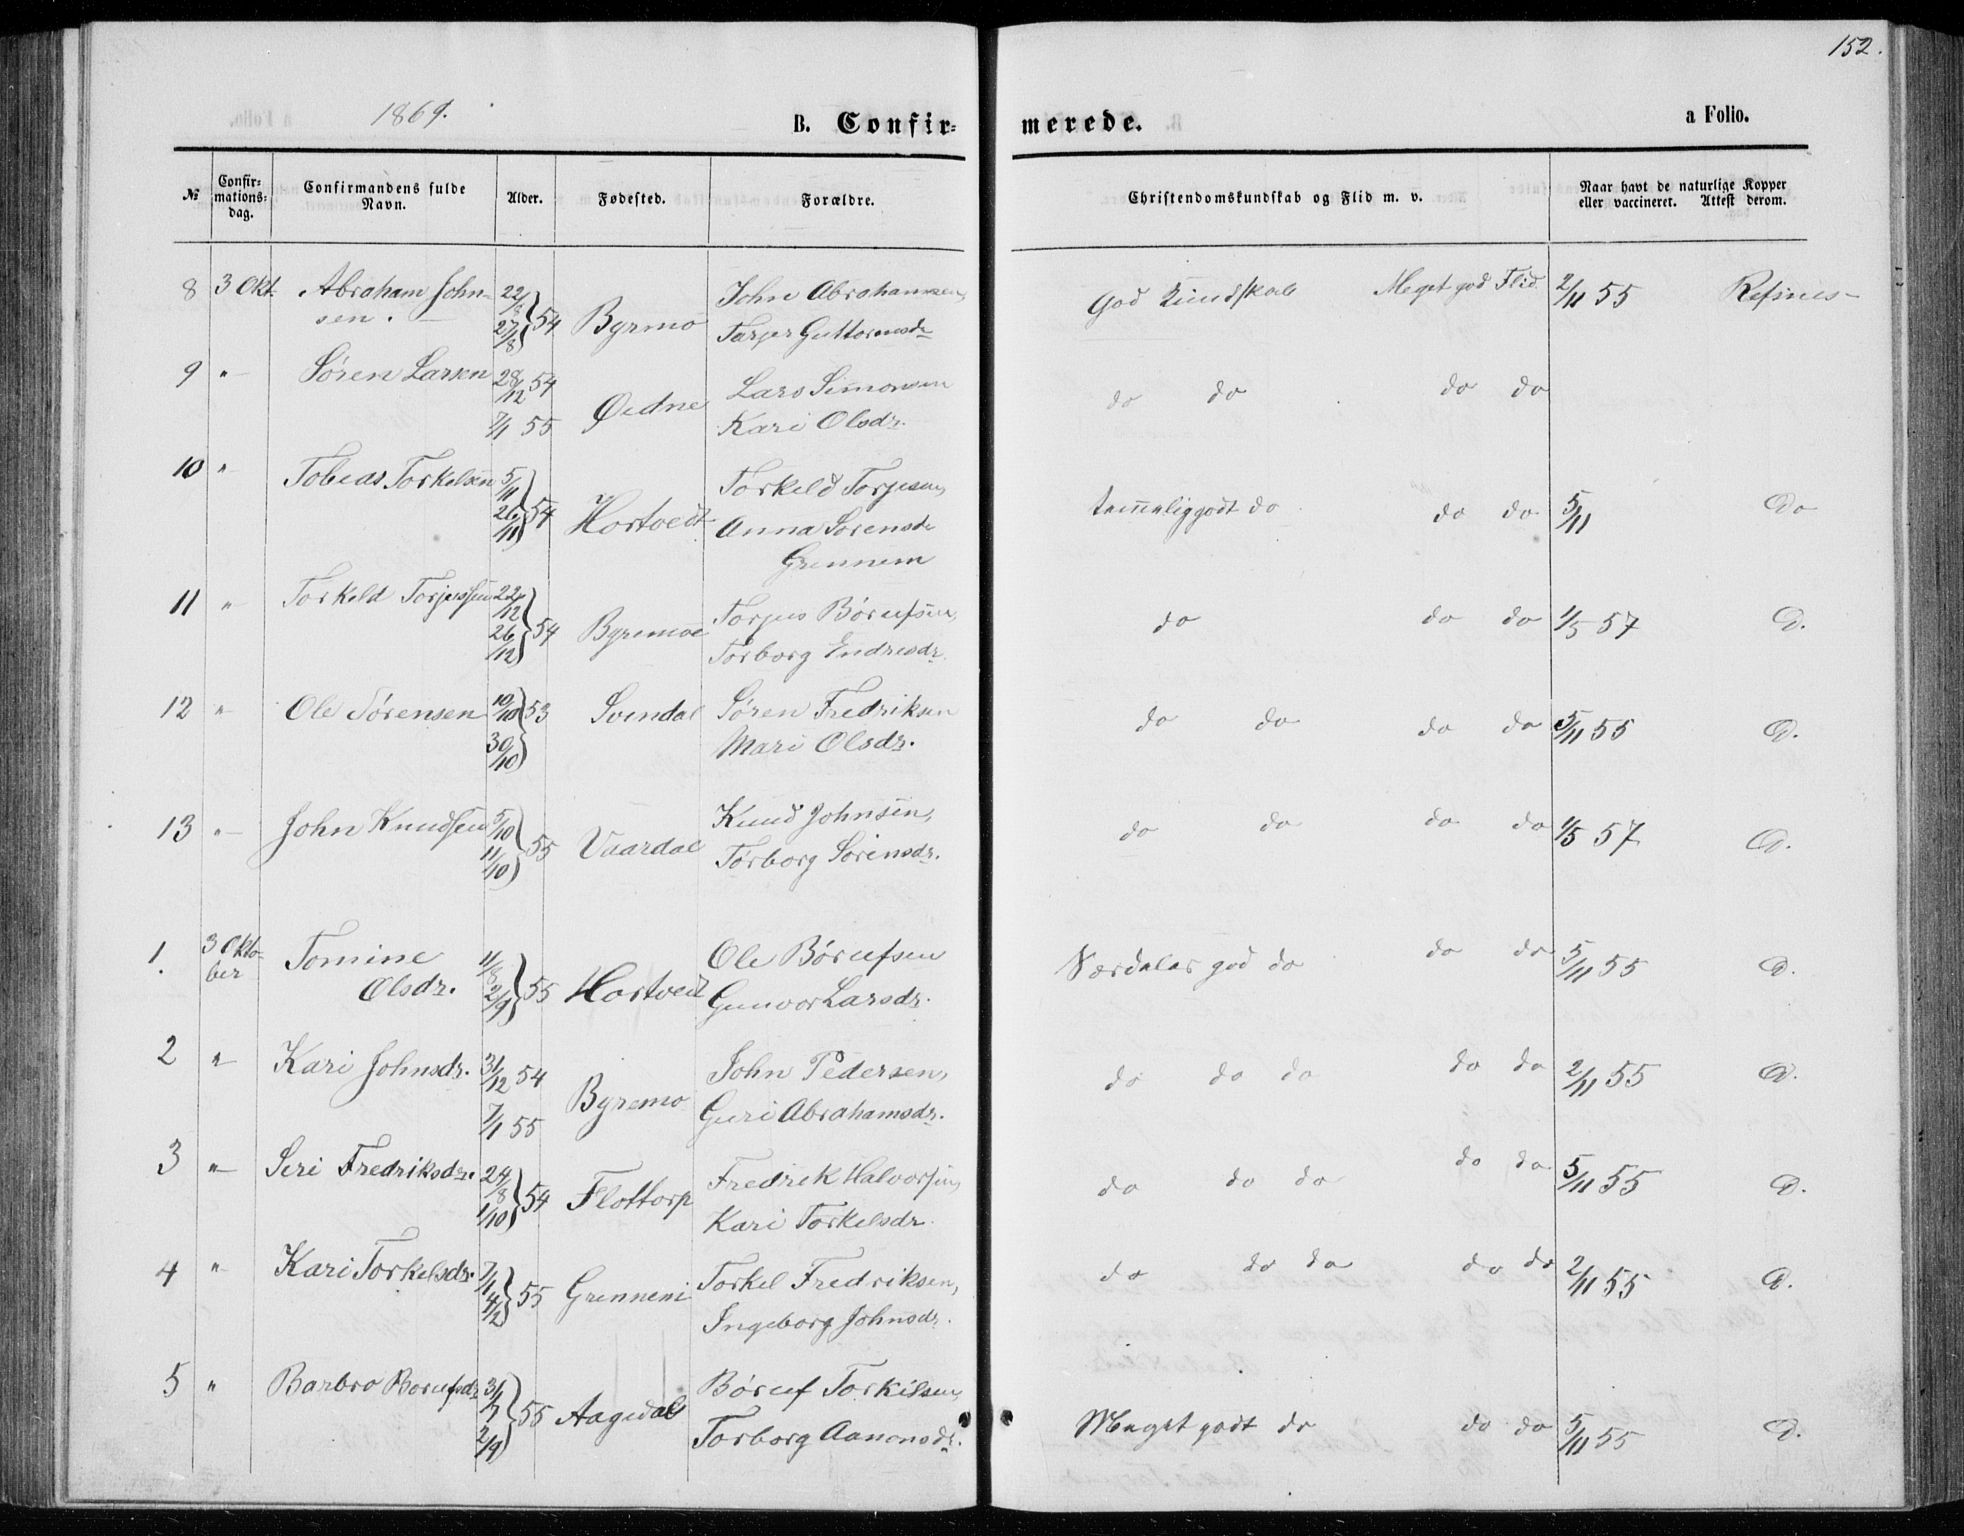 152.
1869.
B. Confir=
merede.
a Folio.
№
Confir=
mations=
dag.
Confirmandens fulde
Navn.
Alder.
Fødested.
Forældre.
Christendomskundskab og Flid m. v.
Naar havt de naturlige Kopper
eller vaccineret. Attest derom.
8 3 Okt. Abraham John-
sen. 22/8 27/8 } 54 Byrmo John Abrahamsen,
Tarjer Guttormsdr
God Kundskab Meget god Flid. 2/11 55 Refsnes-
9 " Søren Larsen 28/12 54
7/1 55 Øidne Lars Simonsen
Kari Olsdr.
do do do do
10 " Tobias Torkelsen 5/11 26/11 } 54 Hortvedt Torkeld Torjesen,
Anna Sørensdr
Grennem
temmelig godt do do do 5/11 Do
11 " Torkeld Torjussen 22/12 26/12 } 54 Byremoe Torjus Børufsen,
Torborg Endresdr.
do do do 1/5 57 D.
12 " Ole Sørensen 10/10 30/10 } 53 Svindal Søren Fredriksen
Mari Olsdr.
do do do do 5/11 55 D.
13 " John Knudsen 5/10 11/10 } 55 Vaardal Knud Johnsen,
Torborg Sørensdr.
do do do do 1/5 57 D.
1. 3 Okto-
ber Tomine
Olsdr. 11/8 2/9 } 55 Hortvedt Ole Børufsen
Gunvor Larsdr.
Særdeles god do do do 5/11 55 D.
2 " Kari Johnsdr. 31/12 54
7/1 55 Byremo John Pedersen,
Guri Abrahamsdr.
do do do do do 2/11 55 D.
3 " Seri Fredriksdr. 24/8 1/10 } 54 Flottorp Fredrik Halvorsen,
Kari Torkelsdr.
do do do do do 5/11 55 D.
4 " Kari Torkelsdr. 7/1 4/2 } 55 Grennem Torkel Fredriksen,
Ingeborg Johnsdr.
do do do do do 2/11 55 D.
5 " Barbro Børufsdr 31/7 2/9 } 55 Aagedal Børuf Torkilsen,
Torborg Aanensdr.
Meget godt do do do 5/11 55 D.